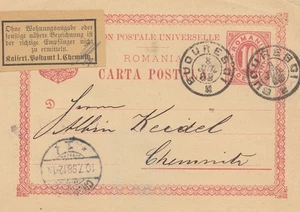 Ohne Wohnungsangabe oder
sonstige nähere Bezeichnung ist
der richtige Empfänger nicht
zu ermitteln.
Kaiserl. Postamt 1, Chemnitz.
UNION POSTALE UNIVERSELLE
ROMANIA
CARTA POSTALA
BUCURESCI
BUCURESCI
Herrn
Albin Keidel
Chemnitz
10.7.98.12-1